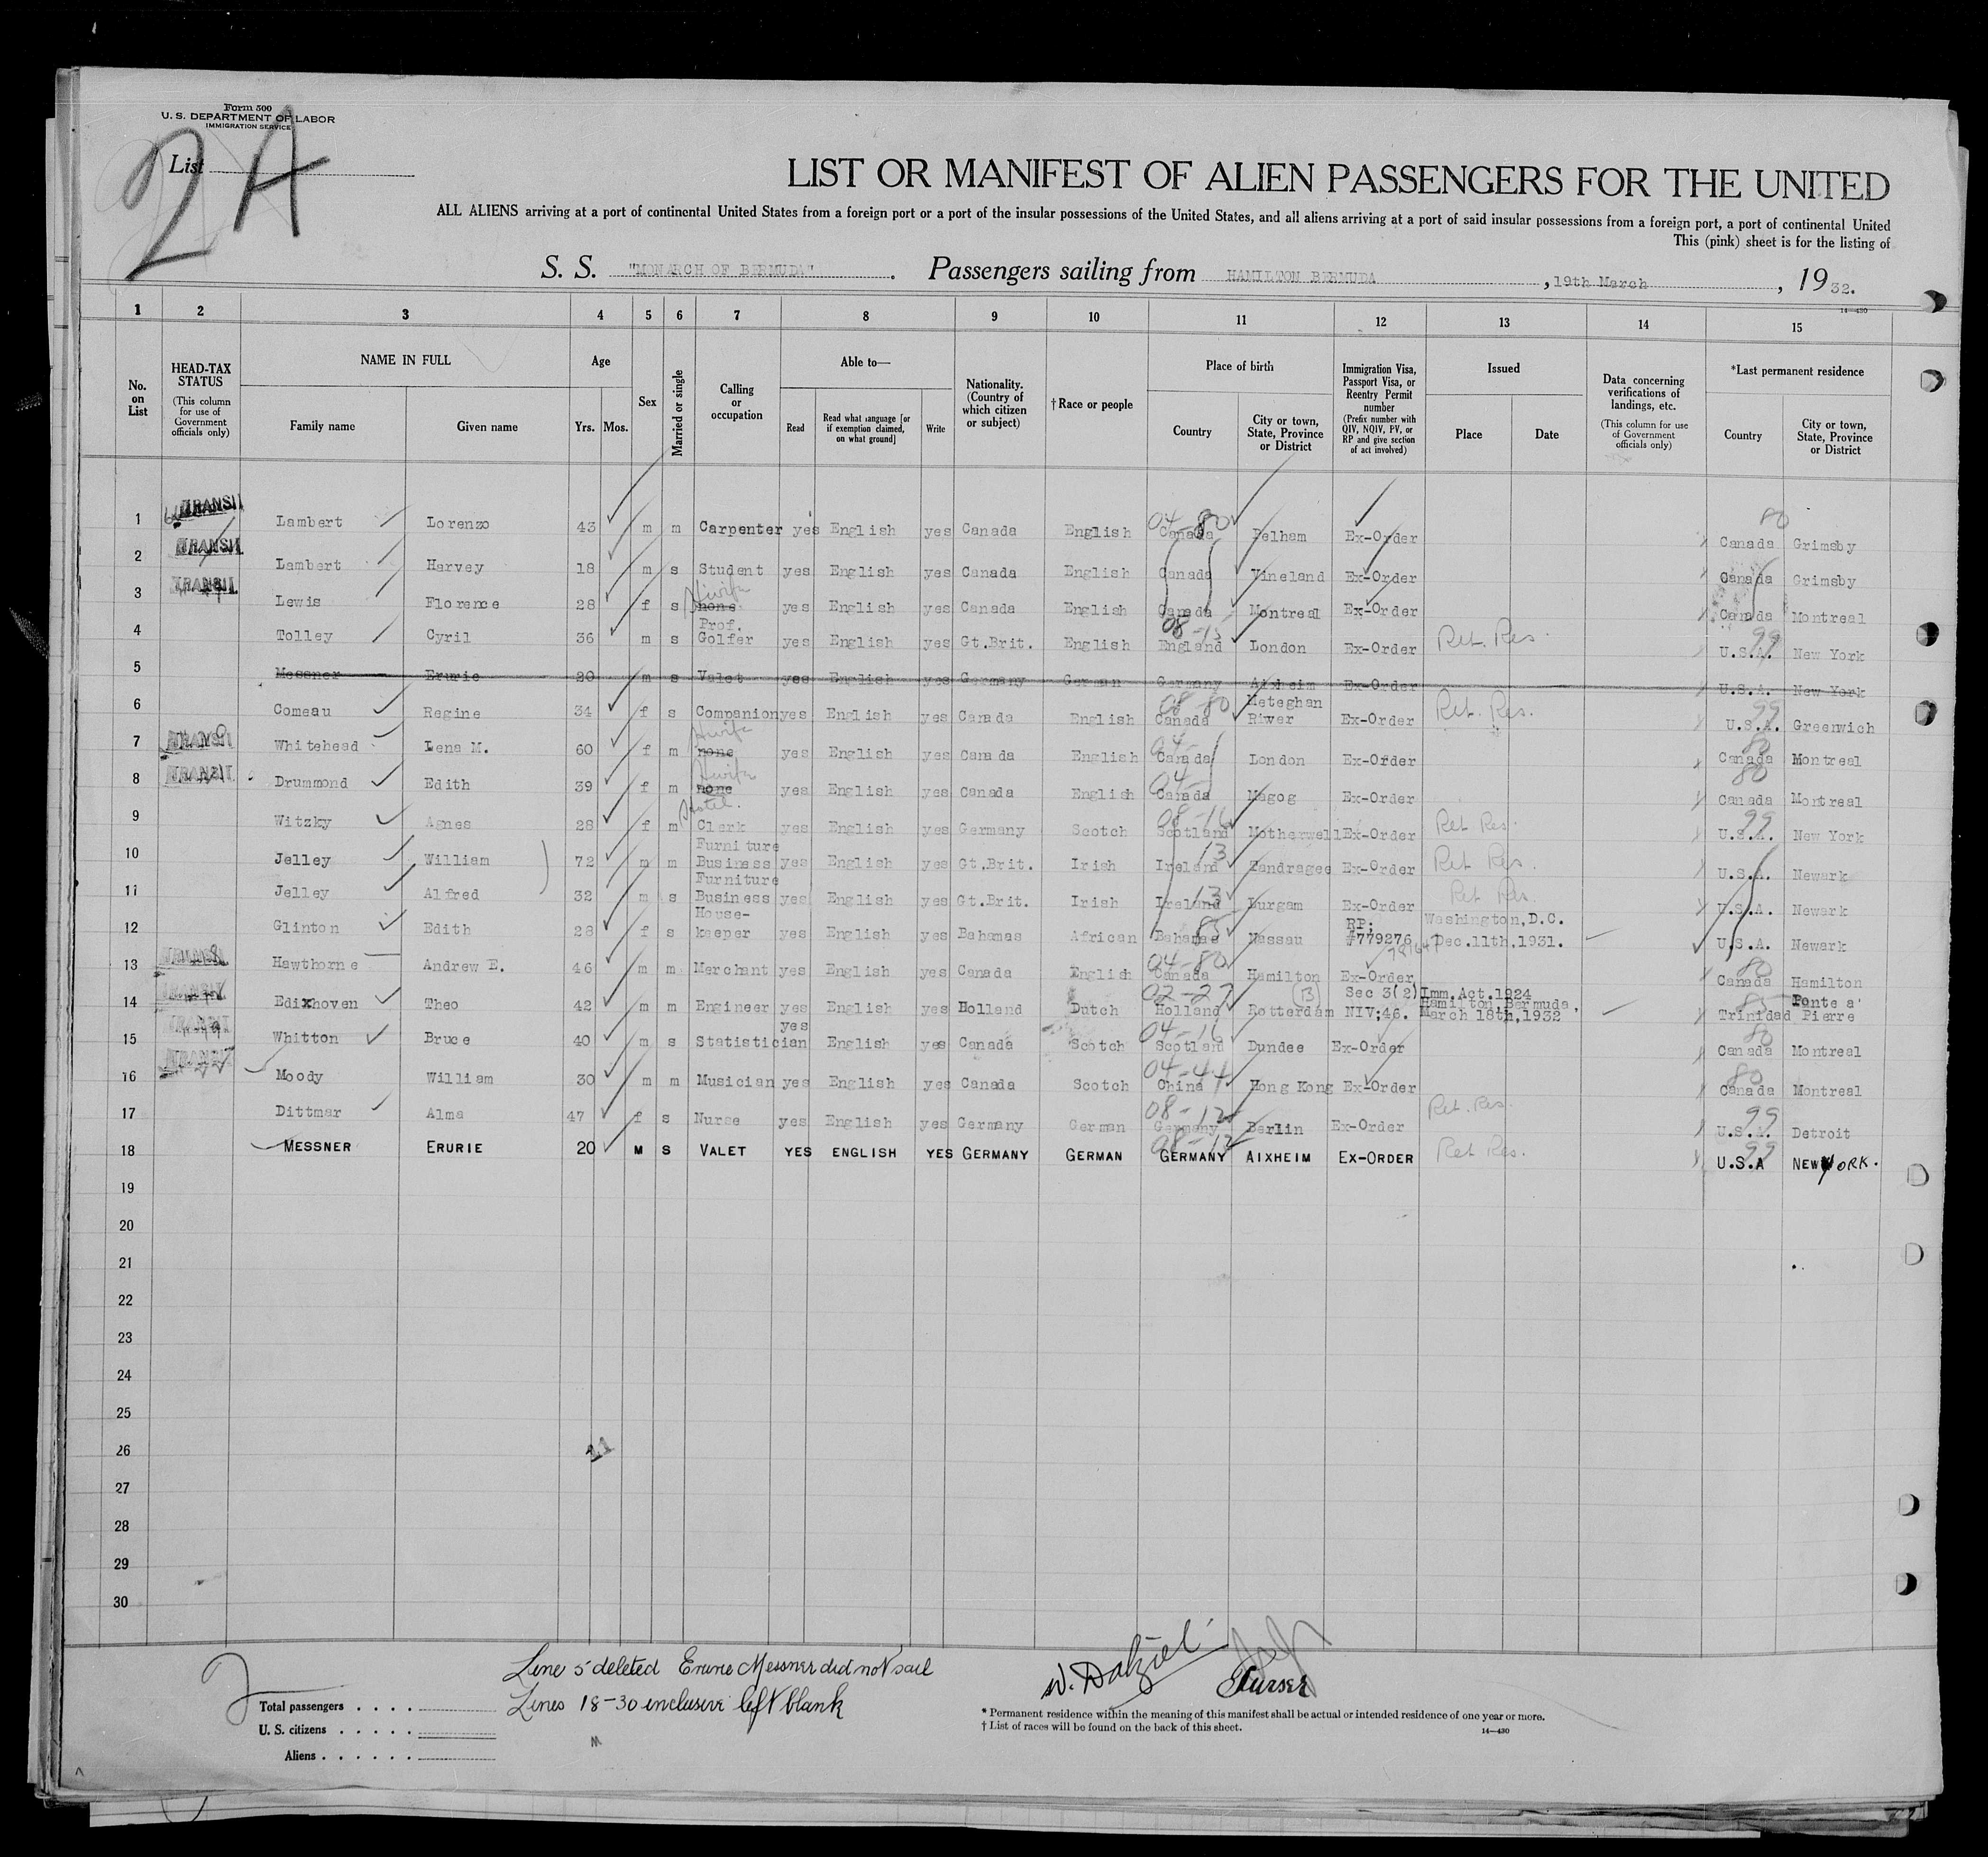 Form 500
U. S. DEPARTMENT OF LABOR
IMMIGRATION SERVICE
List
2A
LIST OR MANIFEST OF ALIEN PASSENGERS FOR THE UNITED
ALL ALIENS arriving at a port of continental United States from a foreign port or a port of the insular possessions of the United States, and all aliens arriving at a port of said insular possessions from a foreign port, a port of continental United
This (pink) sheet is for the listing of
S. S. "MONARCH OF BERMUDA" . Passengers sailing from HAMILTON BERMUDA , 19th March , 19 32.
14—430
1 2 3 4 5 6 7 8 9 10 11 12 13 14 15
No. on List
HEAD-TAX STATUS (This column for use of Government officials only)
NAME IN FULL Family name Given name
Age Yrs. Mos.
Sex
Married or single
Calling or occupation
Able to— Read Read what language [or if exemption claimed, on what ground] Write
Nationality. (Country of which citizen or subject)
†Race or people
Place of birth Country City or town, State, Province or District
Immigration Visa, Passport Visa, or Reentry Permit number (Prefix number with QIV, NQIV, PV, or RP and give section of act involved)
Issued Place Date
Data concerning verifications of landings, etc. (This column for use of Government officials only)
*Last permanent residence Country City or town, State, Province or District
1 TRANSIT Lambert Lorenzo 43 m m Carpenter yes English yes Canada English 04-80 Canada Pelham Ex-Order 80 Canada Grimsby
2 TRANSIT Lambert Harvey 18 m s Student yes English yes Canada English Canada Vineland Ex-Order Canada Grimsby
3 TRANSIT Lewis Florence 28 f s none Hwife yes English yes Canada English Canada Montreal Ex-Order Canada Montreal
4 Tolley Cyril 36 m s Prof. Golfer yes English yes Gt.Brit. English 08-15 England London Ex-Order Ret. Res. 99 U.S.A. New York
5 Messner Erurie 20 m s Valet yes English yes Germany German Germany Aixheim Ex-Order U.S.A. New York
6 Comeau Regine 34 f s Companion yes English yes Canada English 08-80 Canada Meteghan River Ex-Order Ret. Res. 99 U.S.A. Greenwich
7 TRANSIT Whitehead Lena M. 60 f m none Hwife yes English yes Canada English 04- Canada London Ex-Order 80 Canada Montreal
8 TRANSIT Drummond Edith 39 f m none Hwife yes English yes Canada English 04- Canada Magog Ex-Order 80 Canada Montreal
9 Witzky Agnes 28 f m Clerk yes English yes Germany Scotch 08-16 Scotland Motherwell Ex-Order Ret Res. 99 U.S.A. New York
10 Jelley William 72 m m Furniture Business yes English yes Gt.Brit. Irish 13 Ireland Tandragee Ex-Order Ret Res. U.S.A. Newark
11 Jelley Alfred 32 m s Furniture Business yes English yes Gt.Brit. Irish 13 Ireland Lurgam Ex-Order Ret Res. U.S.A. Newark
12 Glinton Edith 28 f s House-keeper yes English yes Bahamas African 85 Bahamas Nassau RP; #779276 Washington,D.C. Dec.11th,1931. U.S.A. Newark
13 TRANSIT Hawthorne Andrew E. 46 m m Merchant yes English yes Canada English 04-80 Canada Hamilton Ex-Order 80 Canada Hamilton
14 TRANSIT Edixhoven Theo 42 m m Engineer yes English yes Holland Dutch 02-27 Holland (B) Rotterdam Sec 3(2) Imm.Act.1924 NIV;46. Hamilton Bermuda, March 18th,1932 Trinidad Ponte a' Pierre
15 TRANSIT Whitton Bruce 40 m s Statistician yes English yes Canada Scotch 04-16 Scotland Dundee Ex-Order 80 Canada Montreal
16 TRANSIT Moody William 30 m m Musician yes English yes Canada Scotch 04-44 China Hong Kong Ex-Order 80 Canada Montreal
17 Dittmar Alma 47 f s Nurse yes English yes Germany German 08-12 Germany Berlin Ex-Order Ret. Res. 99 U.S.A. Detroit
18 MESSNER ERURIE 20 M S VALET YES ENGLISH YES GERMANY GERMAN 08-12 GERMANY AIXHEIM EX-ORDER Ret Res. 99 U.S.A NEW YORK.
19
20
21
22
23
24
25
26
27
28
29
30
Line 5 deleted Erurie Messner did not sail
Lines 18-30 inclusive left blank
W. Dalziel
Purser
Total passengers . . . .
U. S. citizens . . . . .
Aliens . . . . . .
* Permanent residence within the meaning of this manifest shall be actual or intended residence of one year or more.
† List of races will be found on the back of this sheet.
14—430